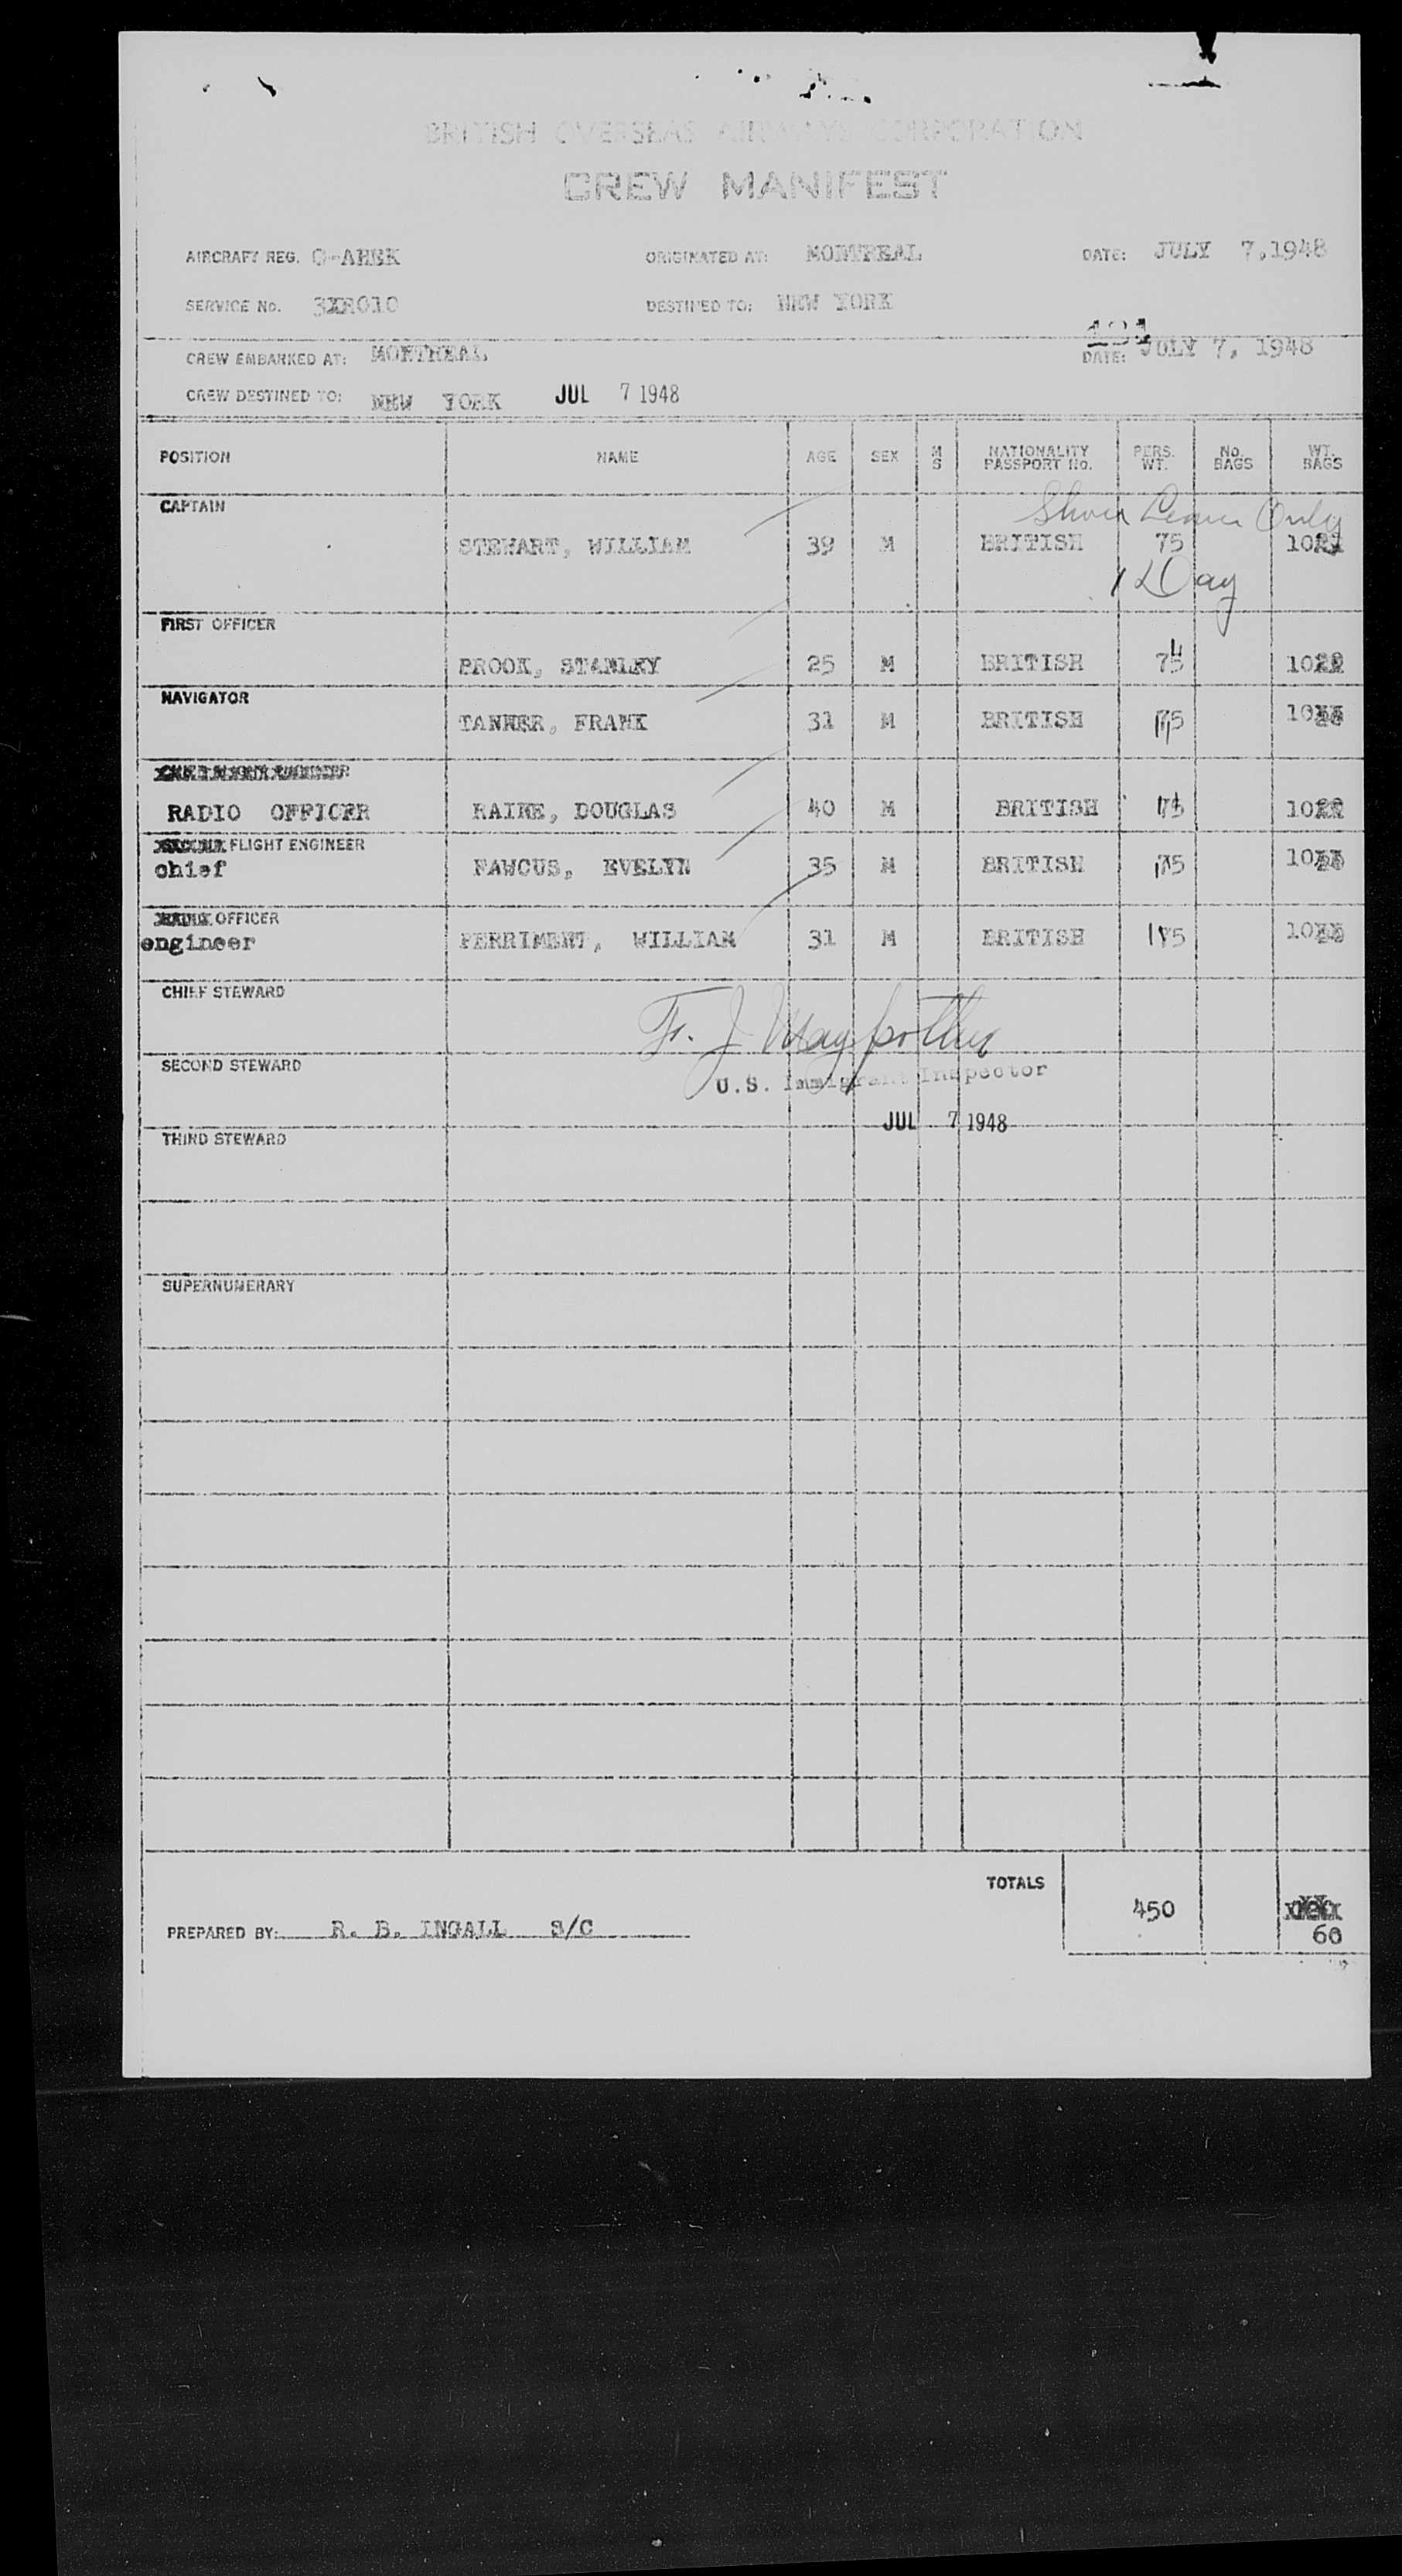 BRITISH OVERSEAS AIRWAYS CORPORATION
CREW MANIFEST
AIRCRAFT REG. G-AHEK ORIGINATED AT: MONTREAL DATE: JULY 7,1948
SERVICE No. DESTINED TO: NEW YORK
CREW EMBARKED AT: MONTREAL DATE: JULY 7, 1948
CREW DESTINED TO: NEW YORK JUL 7 1948
POSITION NAME AGE SEX M S NATIONALITY PASSPORT No. PERS. WT. No. BAGS WT. BAGS
Shore Leave Only
CAPTAIN
STEWART, WILLIAM 39 M BRITISH 75 10
Day
FIRST OFFICER
BROOK, STANLEY 25 M BRITISH 75 10
NAVIGATOR
TANNER, FRANK 31 M BRITISH 75 10
RADIO OFFICER RAINE, DOUGLAS 40 M BRITISH 75 10
FLIGHT ENGINEER
chief FAWCUS, EVELYN 35 M BRITISH 75 10
OFFICER
engineer PERRIMENT, WILLIAM 31 M BRITISH 75 10
CHIEF STEWARD
SECOND STEWARD
U.S. Immigrant Inspector
JUL 7 1948
THIRD STEWARD
SUPERNUMERARY
TOTALS 450
60
PREPARED BY: R. B. INGALL S/C